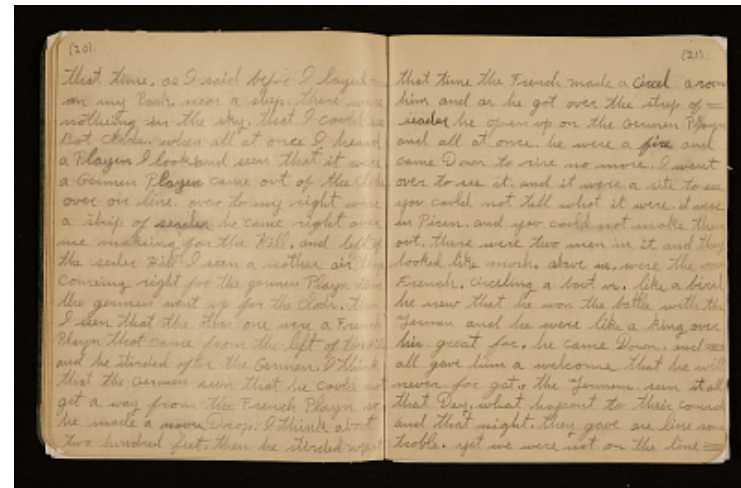 (20)
that time. as I said befor I layed
on my Back near a step. there were
notheing in the sky. that I could see
Bot Clouds. when all at once I heard
a Playen I look and seen that it were
a Germen Playen came out of the Clouds
over our line. over to my right were
a strip of he came right over
me makeing for the Hill. and left of
the Hill I seen a nother air Playn
Comeing right for the germen Playn then
the germen went up for the Clouds. then
I seen that the ther one were a French
Playn that came from the left of the Hill
and he stirded after the Germen. I think
that the Germen seen that he could not
get a way from the French Playn so
he made a Drop. I think about
two hundred feet. then he stirded up
(21)
that time the French made a Circel aroun
him and as he got over the strip of
he open up on the Germen Playn
and all at once. he were a fire and
came Down to rise no more. I went
over to see it. and it were a site to see
you could not tell what it were. it were
in Picen. and you could not make them
out. there were two men in it and they
looked like mush. above us. were the
French. circeling a bout us. like a bird
he new that he won the battle with the
Germen and he were like a king over
his great foe. he came Down. and
all gave him a welcome that he will
never for get. the Germens seen it all
that Day. what hapont to their comrad
and that night. they gave are line some
troble. yet we were not on the line